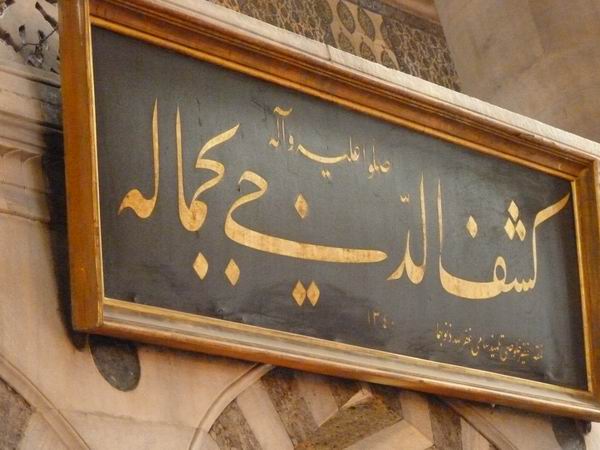 كشف الدجى بجماله
صلوا عليه وآله
١٣٤٠